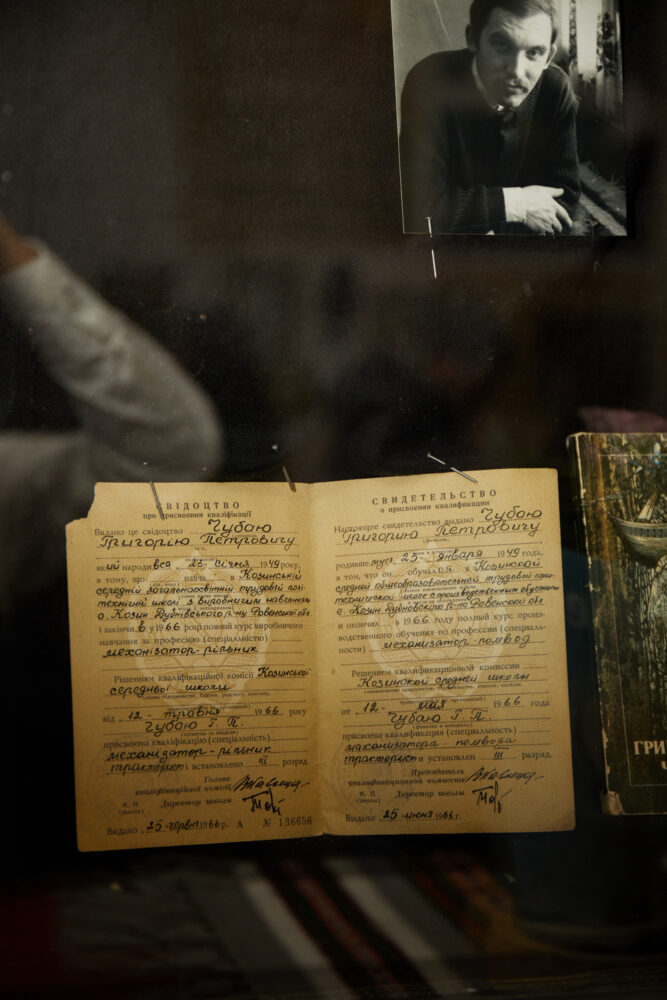 СВІДОЦТВО
про присвоєння кваліфікації
Видано це свідоцтво Чубаю
Григорію Петровичу
який народився 25 січня 1949 року,
в тому, що навча в Козинській
середній загальноосвітній трудовій полі
технічній школі з виробничим навчання
с. Козин Дубнівського р-ну Ровенської обл
і закінчив у 1966 році повний курс виробничого
навчання за професією (спеціальністю)
механізатор-рільник
Рішенням кваліфікаційної комісії Козинської
середньої школи
від „12" травня 1966 року
Чубаю Г. П.
присвоєно кваліфікацію (спеціальність)
механізатор-рільник
тракторист і встановлено III розряд.
Голова
кваліфікаційної комісії
М. П.
(школи)
Директор школи
Видано „25" червня 1966 р. А № 136656
СВИДЕТЕЛЬСТВО
о присвоении квалификации
Настоящее свидетельство выдано Чубаю
Григорию Петровичу
родившемуся 25 января 1949 года,
в том, что он обучался в Козинской
средней общеобразовательной трудовой поли
технической школе с производственным обучением
с. Козин Дубновского р-на Ровенской обл
и окончил в 1966 году полный курс произ-
водственного обучения по профессии (специаль-
ности) механизатор-полевод
Решением квалификационной комиссии
Козинской средней школы
от „12" мая 1966 года
Чубаю Г. П.
присвоена квалификация (специальность)
механизатора-полевода
тракторист и установлен III разряд.
Председатель
квалификационной комиссии
М. П.
(школы)
Директор школы
Выдано „25" июня 1966 г.
ГРИ
Ч